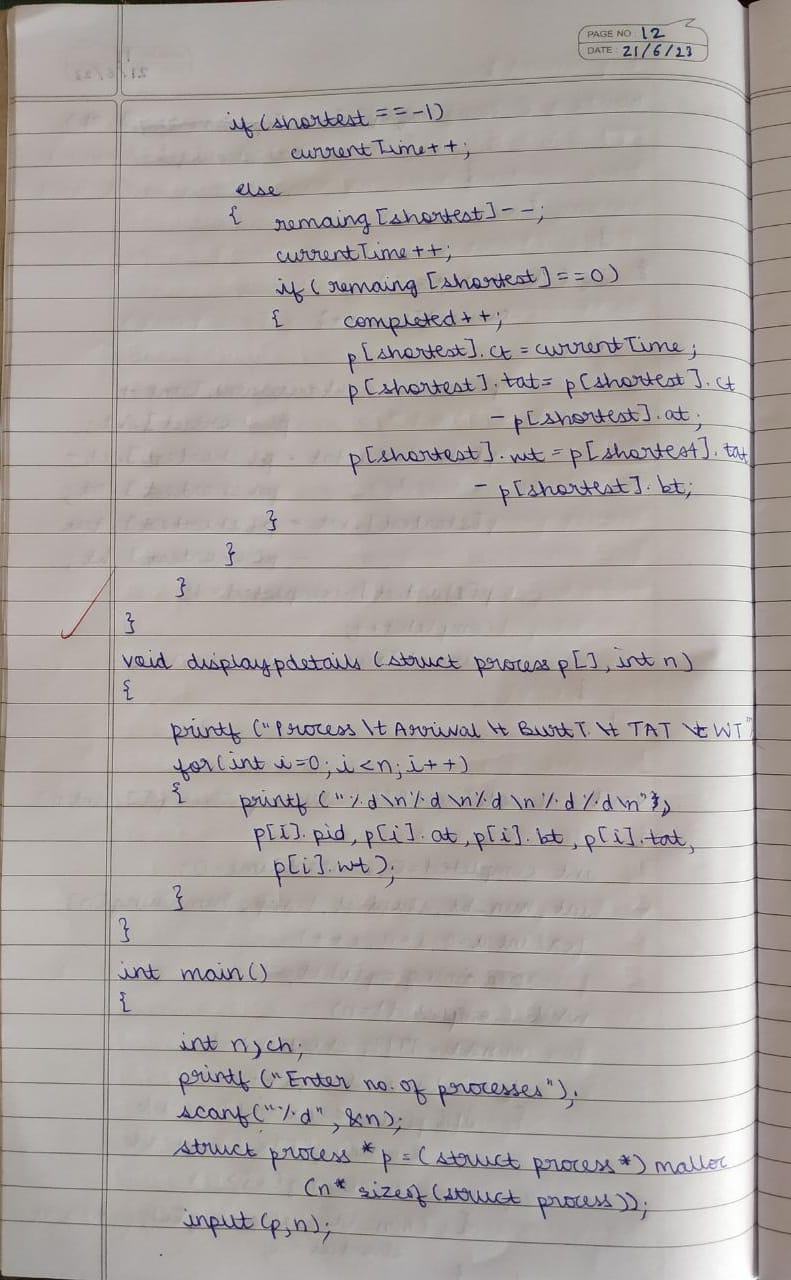 PAGE NO 12
DATE: 21/6/23
if (shortest == -1)
currentTime++;
else
{ remaing [shortest]--;
currentTime++;
if (remaing [shortest]==0)
{ completed++;
p[shortest].ct = currentTime;
p[shortest].tat= p[shortest].ct
- p[shortest].at;
p[shortest].wt = p[shortest].tat
- p[shortest].bt;
}
}
}
}
void displaypdetails (struct process p[], int n)
{
printf ("Process \t Arrival \t BurtT. \t TAT \t WT"
for(int i=0; i<n; i++)
{ printf ("%d\n%d\n%d\n%d%d\n"),
p[i].pid, p[i].at, p[i].bt, p[i].tat,
p[i].wt);
}
}
int main()
{
int n, ch;
printf ("Enter no. of processes");
scanf("%d", &n);
struct process *p = (struct process*) malloc
(n* sizeof (struct process));
input (p,n);